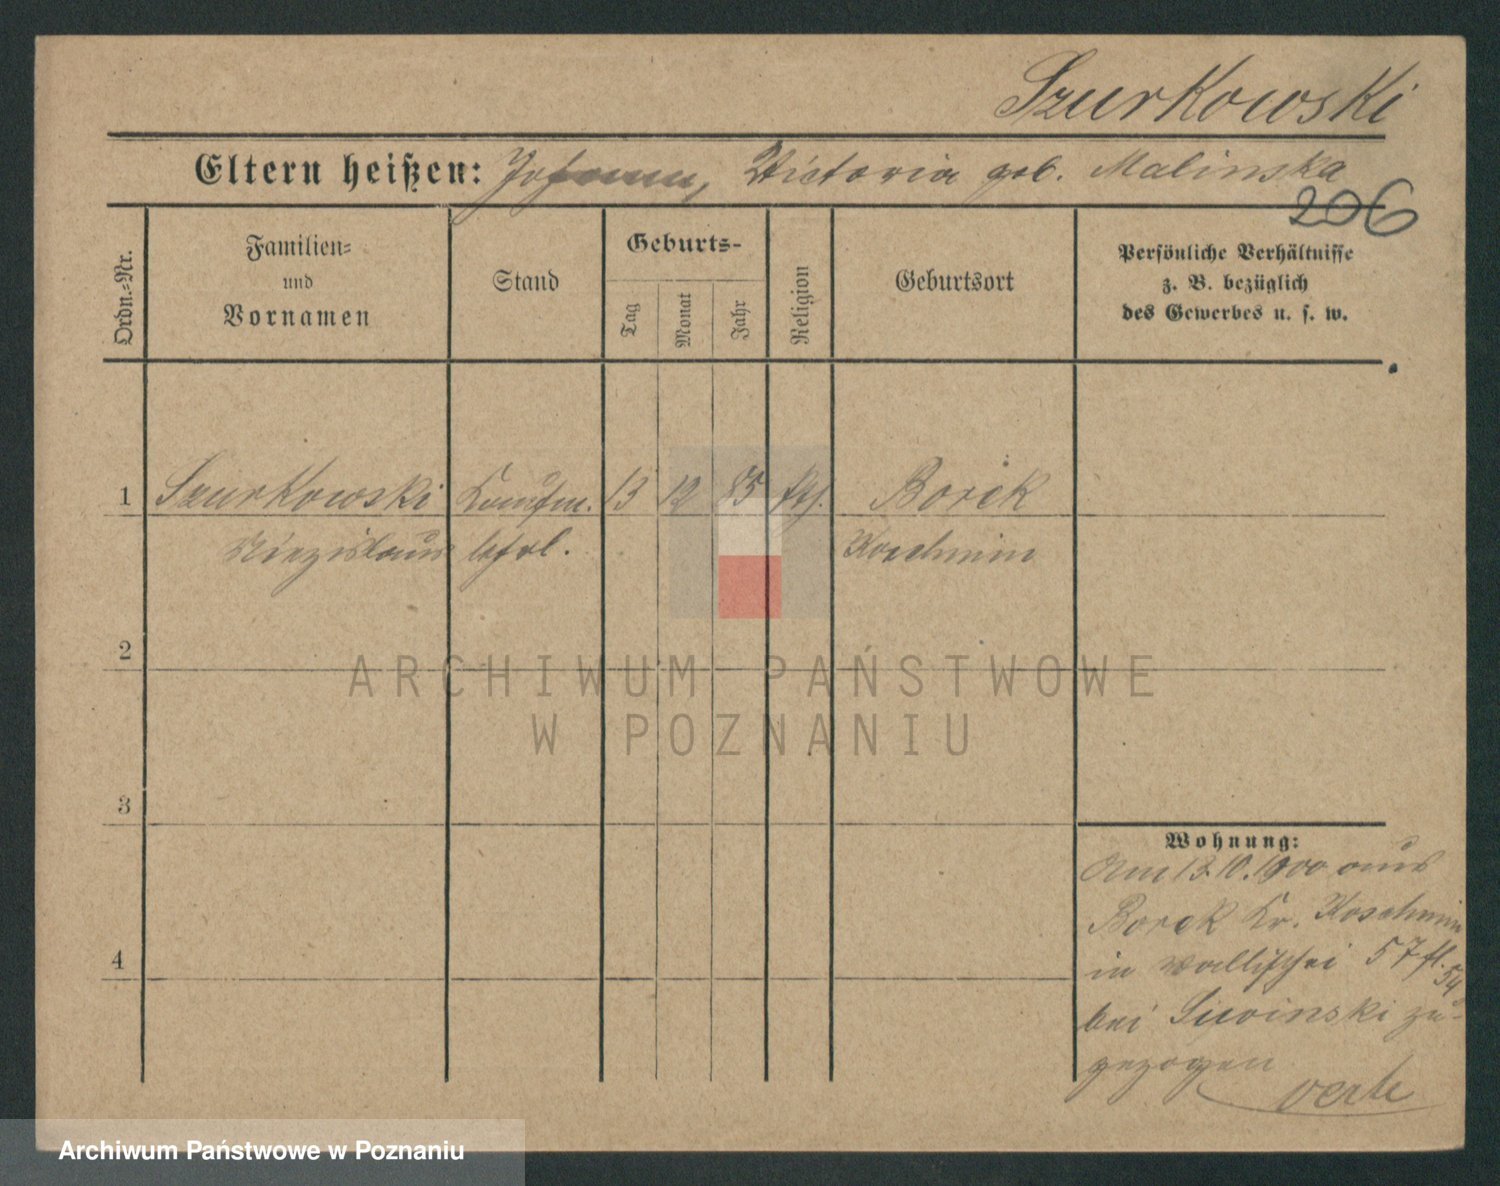 Szurkowski
Eltern heißen: Johann, Victoria geb. Malinska
206
Ordn.-Nr.
Familien-
und
Vornamen
Stand
Geburts-
Tag
Monat
Jahr
Religion
Geburtsort
Persönliche Verhältnisse
z. B. bezüglich
des Gewerbes u. s. w.
1 Szurkowski Kaufm. 13 12 85 kth. Borek
lehrl. Koschmin
2
3
4
Wohnung:
Am 13.10.1900 aus
Borek Kr. Koschmin
in Wallischei 57 fl. 54
bei Siwinski zu-
gezogen
ARCHIWUM PAŃSTWOWE
W POZNANIU
Archiwum Państwowe w Poznaniu